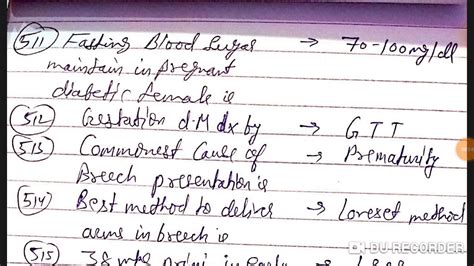 511 Fasting Blood Sugar → 70-100mg/dl
maintain in pregnant
diabetic female is
512 Gestation d.M dx by → GTT
513 Commonest Cause of → Prematurity
Breech presentation is
514 Best method to deliver → Loveset method
arms in breech is
DU RECORDER
515